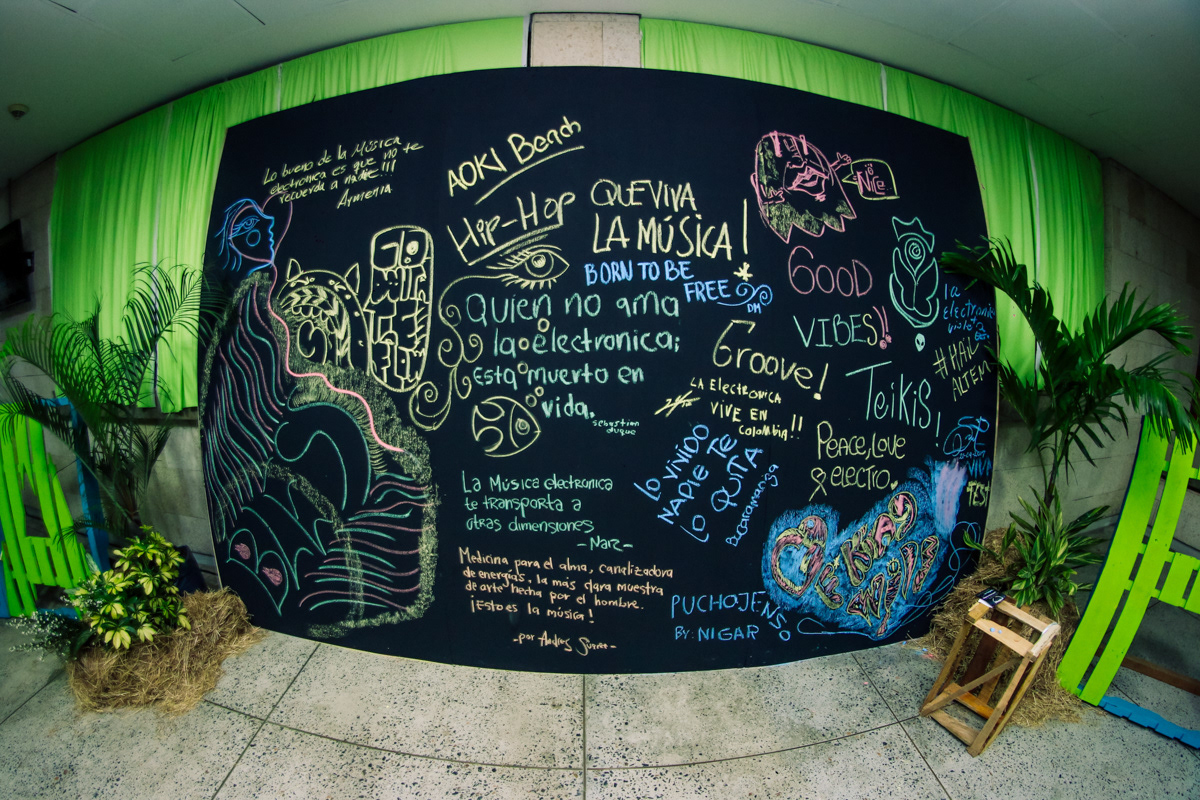 Lo bueno de la Música
electronica es que no te
recuerda a nadie!!!
Armenia
AOKI Beach
Hip-Hop
QUE VIVA
LA MÚSICA!
BORN TO BE
FREE
DM
Quien no ama
la electronica;
Esta muerto en
vida.
sebastian
duque
La Música electronica
te transporta a
otras dimensiones
-Narz-
Medicina para el alma, canalizadora
de energías, la más clara muestra
de arte hecha por el hombre.
¡Esto es la música!
-por Andres
NICE
GOOD
VIBES!
Groove!
LA Electronica
VIVE EN
Colombia!!
LO VIVIDO
NADIE TE
LO QUITA
Bucaramanga
la
Electronica
#HAIL
ALTEN
Teikis!
Peace, Love
electro.
VIVA
PUCHOJENSO
BY: NIGAR